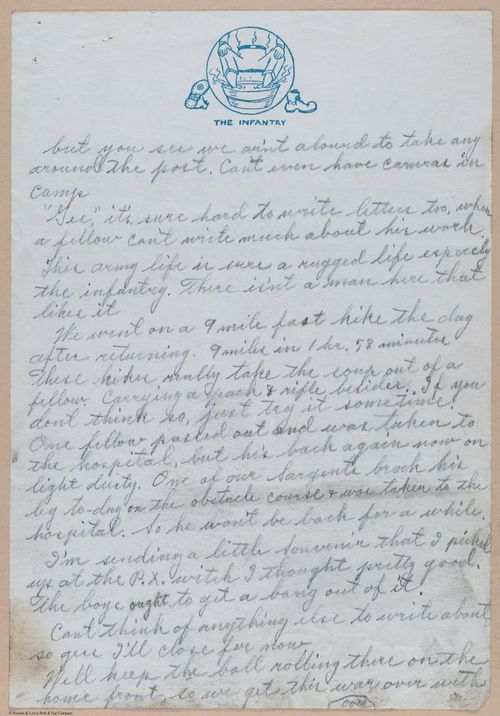 THE INFANTRY
but you see we ain't alowd to take any
around the post. Cant even have cameras in
camp
"Gee," it's sure hard to write letters too, when
a fellow can't write much about his work.
This army life is sure a rugged life especely
the infantry. There isn't a man here that
likes it
We went on a 9 mile fast hike the day
after returning. 9 miles in 1 hr. 58 minutes
These hikes really take the soup out of a
fellow. Carrying a pack & rifle besides. If you
don't think so, just try it some time.
One fellow passed out and was taken to
the hospital, but his back again now on
light duity. One of our Sargents broch his
leg to-day on the obstacle course & was taken to the
hospital. So he won't be back for a while.
I'm sending a little souvenir that I picked
up at the P.X. witch I thought pretty good.
The boys ought to get a bang out of it.
Cant think of anything else to write about
so gess I'll close for now
Well keep the ball rolling there on the
home front, so we get this war over with
over